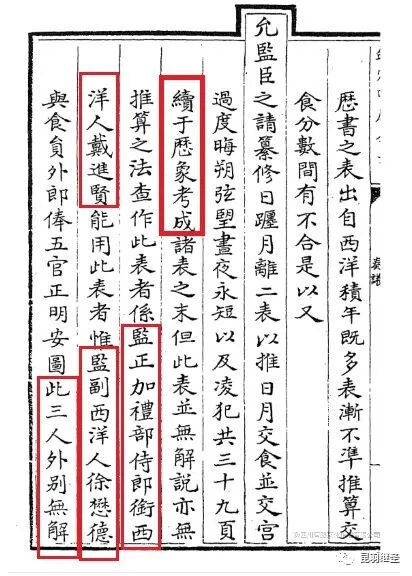 歴書之表出自西洋積年既多表漸不準推算交
食分數間有不合是以又
允監臣之請纂修日躔月離二表以推日月交食並交宮
過度晦朔弦望晝夜永短以及凌犯共三十九頁
續于歴象考成諸表之末但此表並無解説亦無
推算之法查作此表者係監正加禮部侍郎銜西
洋人戴進賢能用此表者惟監副西洋人徐懋德
與食員外郎俸五官正明安圖此三人外別無解
昆羽继圣